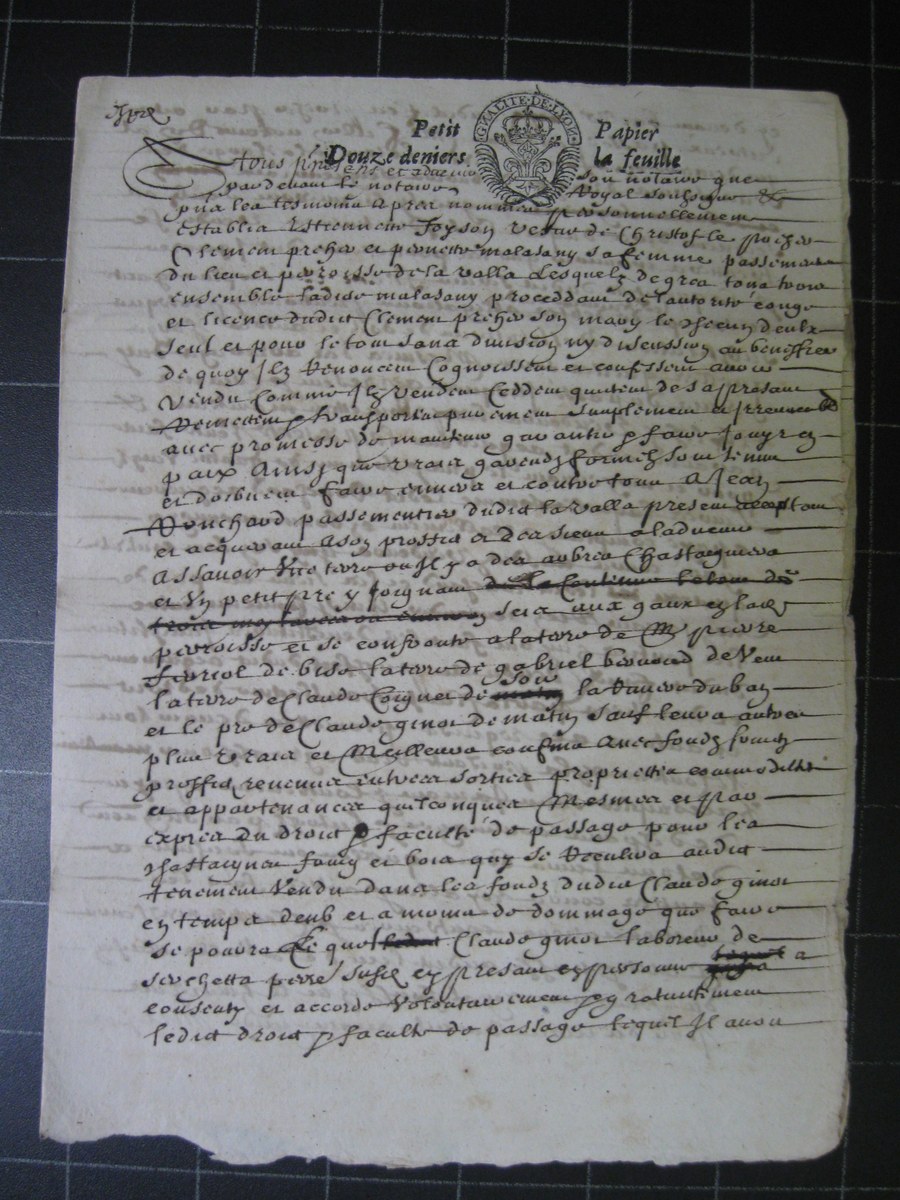 Petit Papier
GNALITE·DE·LYON
Douze deniers la feuille
A tous presens et advenir soit notoire que
pardevant le notaire Royal soubsigne &
puis les tesmoins apres nommes personnellement
establis Estiennette vefve de Christofle
Clement preher et pernette malasany sa femme passementier
du lieu et perroisse de la valla Lesquelz de gres tous trois
ensemble ladite malasany proceddant de l'autorité conge
et licence dudict Clement preher son mary le checun deulx
seul et pour le tout sans division ny discussion au beneffice
de quoy Ilz Renoncent Cognoissent et confessent avoir
vendu Comme Ilz vendent Ceddent quittent des a present
Remettent & transportent purement simplement et Irrevocable
avec promesse de maintenir garantir & faire Jouyr en
paix Ainsy que vrais gavendz formelz sont tenus
et doibvent faire envers et contre tous A Jean
Bouchard passementier dudict la valla present acceptant
et acquerant a son proffit et des siens a ladvenir
Assavoir Une terre ou Il y a des arbres Chastaigners
et Un petit pre y Joignant de la Contenue
trois ou environ seis aux gaux en lad
perroisse et se confronte a la terre de Mr pierre
ferriol de bise la terre de gabriel de Vent
la terre de Claude Coignet de soir la Riviere du ban
et le pre de Claude ginot de matin sauf leurs autres
plus vrais et Meilleurs confins Avec fondz fruictz
proffitz revenus entrees sorties proprietes commodittes
et appartenances quelconques Mesmes et par
expres du droit & faculté de passage pour les
chastaignes foing et bois quy se Recullira audict
tenement Vendu dans les fondz dudict Claude ginot
en temps deub et a moins de dommage que faire
se pourra Le quel ledict Claude ginot laboureur de
sechetta pierre Jusse en presant en personne a
consenty et accorde Volontairement & gratuitement
ledict droit & faculte de passage lequel Il avoit